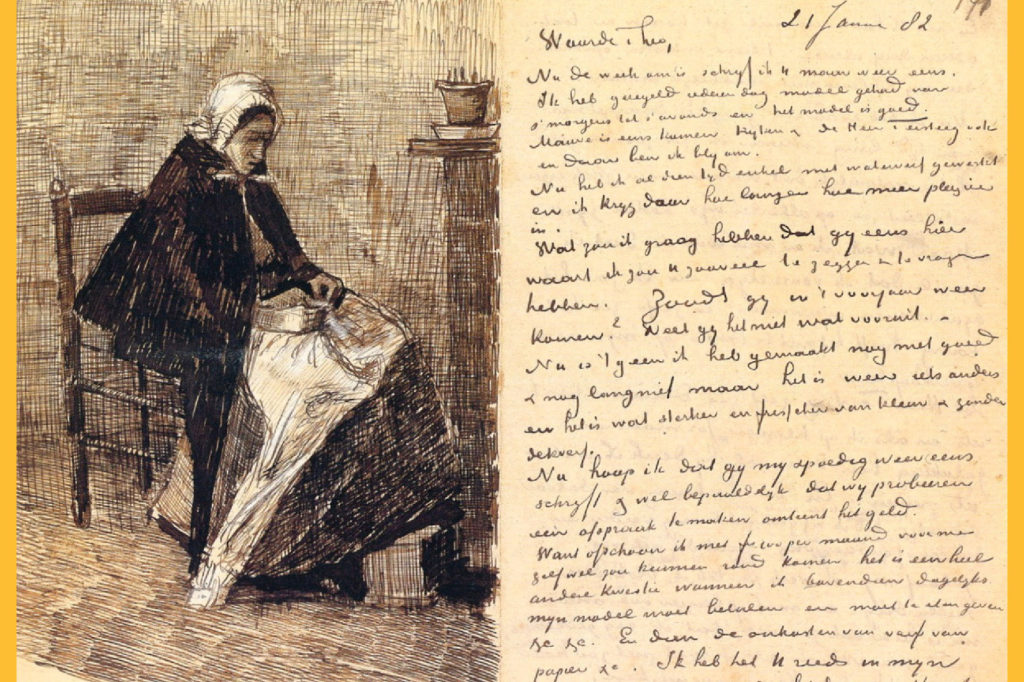 21 Janua 82
Waarde Theo,
Nu de week om is schrijf ik u maar weer eens.
Ik heb geregeld iederen dag model gehad van
s'morgens tot s'avonds en het model is goed.
Mauve is eens komen kyken & de Heer Tersteeg ook
en daar ben ik bly om.
Nu heb ik al dien tyd enkel met waterverf gewerkt
en ik kryg daar hoe langer hoe meer plezier
in.
Wat zou ik graag hebben dat gy eens hier
waart ik zou u zooveel te zeggen & te vragen
hebben. Zoudt gy in 't voorjaar weer
komen? Weet gy het niet wat vooruit. –
Nu is 't geen ik heb gemaakt nog niet goed
& nog lang niet maar het is weer iets anders
en het is wat sterker en frisscher van kleur & zonder
dekverf.
Nu hoop ik dat gy my spoedig weer eens
schryft & wel bepaaldelyk dat wy probeeren
een afspraak te maken omtrent het geld.
Want ofschoon ik met fr 100 per maand voor me
zelf wel zou kunnen rond komen het is een heel
andere kwestie wanneer ik bovendien dagelyks
myn model moet betalen en moet te eten geven
&c &c. En dan de onkosten van verf van
papier &c. Ik heb het U reeds in myn